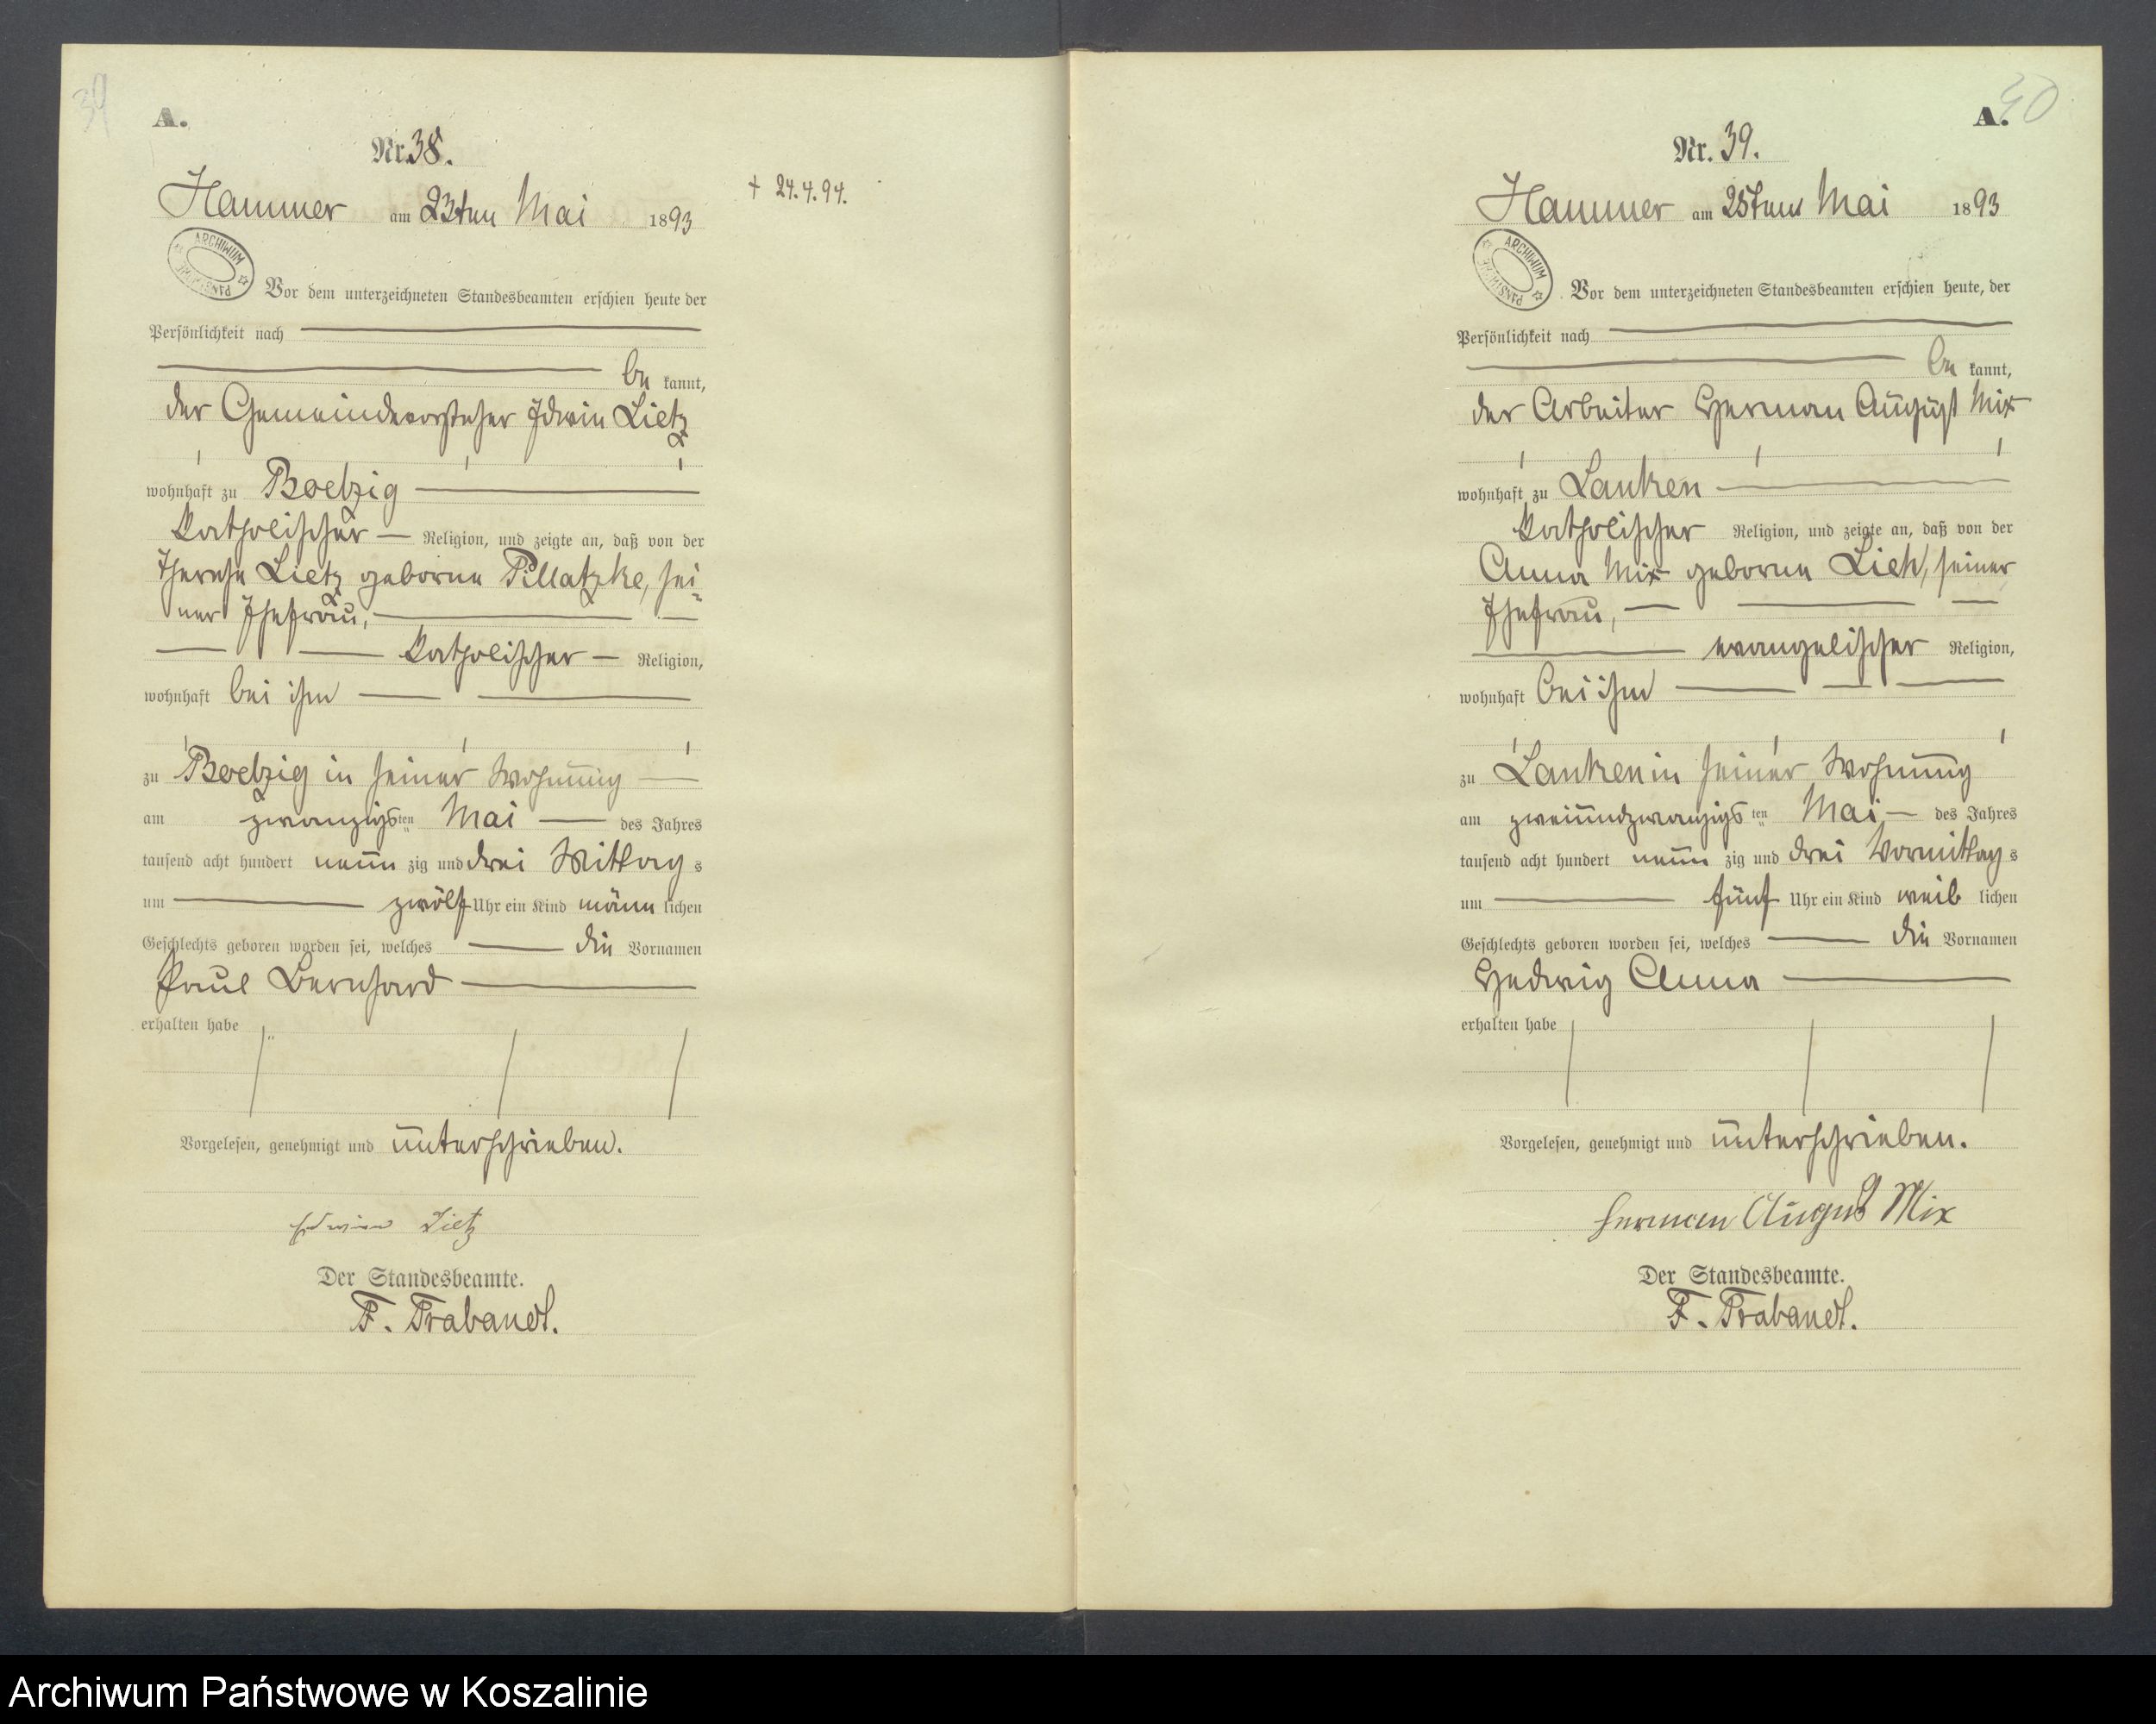 39
A.
Nr. 38.
Hammer am 23ten Mai 1893
+ 24.4.94.
ARCHIWUM PAŃSTWOWE
Vor dem unterzeichneten Standesbeamten erschien heute der
Persönlichkeit nach
be kannt,
der Gemeindevorsteher Edwin Lietz
wohnhaft zu Boetzig
katholischer Religion, und zeigte an, daß von der
Therese Lietz geborne Pillatzke, sei-
ner Ehefrau,
katholischer Religion,
wohnhaft bei ihm
zu Boetzig in seiner Wohnung
am zwanzigsten Mai des Jahres
tausend acht hundert neun zig und drei Mittags
um zwölf Uhr ein Kind männ lichen
Geschlechts geboren worden sei, welches die Vornamen
Paul Bernhard
erhalten habe
Vorgelesen, genehmigt und unterschrieben.
Edwin Lietz
Der Standesbeamte.
F. Trabandt.
40
A.
Nr. 39.
Hammer am 25ten Mai 1893
ARCHIWUM PAŃSTWOWE
Vor dem unterzeichneten Standesbeamten erschien heute, der
Persönlichkeit nach
be kannt,
der Arbeiter Herman August Mix
wohnhaft zu Lanken
katholischer Religion, und zeigte an, daß von der
Anna Mix geborne Lieh, seiner
Ehefrau,
evangelischer Religion,
wohnhaft bei ihm
zu Lanken in seiner Wohnung
am zweiundzwanzigsten Mai des Jahres
tausend acht hundert neun zig und drei Vormittags
um fünf Uhr ein Kind weib lichen
Geschlechts geboren worden sei, welches die Vornamen
Hedwig Anna
erhalten habe
Vorgelesen, genehmigt und unterschrieben.
Herman August Mix
Der Standesbeamte.
F. Trabandt.
Archiwum Państwowe w Koszalinie